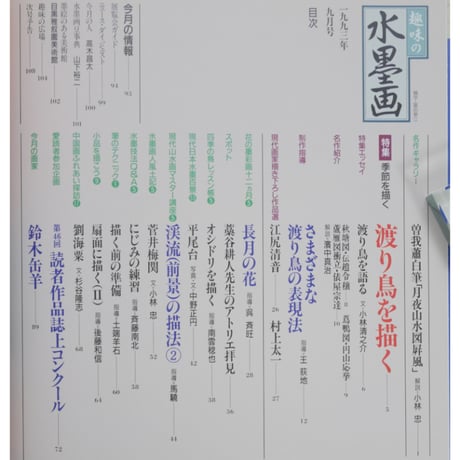 趣味の
水墨画
一九九三年
九月号
目次
今月の情報 93
展覧会ガイド 94
ニュース・ダイジェスト 99
今月の人 高木昌太 100
水墨画百事典 山下裕二 101
墨絵のある美術館
目黒雅叙園美術館 102
趣味の広場 104
次号予告 108
名作ギャラリー
曽我蕭白筆「月夜山水図屏風」 解説・小林 忠 1
特集 季節を描く
渡り鳥を描く 5
特集エッセイ
渡り鳥を語る 文・小林清之介 6
名作紹介
秋塘図・伝趙令穣 8 蔦鴨図・円山応挙 9
蘆雁図衝立・俵屋宗達 10
解説・濱中真治
制作指導
さまざまな
渡り鳥の表現法 指導・王 荻地 12
現代画家描き下ろし作品選
江尻清音 26 村上太一 27
花の墨彩画十二ヵ月⑤
長月の花 指導・呉 斉旺 28
スポット
藁谷耕人先生のアトリエ拝見 36
四季の鳥レッスン帳③
オシドリを描く 指導・南雲稔也 38
現代日本水墨百景⑩
平尾台 写真・文・中野正円 42
現代山水画マスター講座⑥
渓流〈前景〉の描法② 指導・馬驍 44
水墨画人風土記⑤
菅井梅関 文・小林 忠 52
水墨技法Q&A⑤
にじみの練習 指導・斉藤南北 58
筆のテクニック①
描く前の準備 指導・土端羊石 60
小品を描こう⑨
扇面に描く〈II〉 指導・後藤和信 64
中国画ふれあい探訪⑰
劉海粟 文・杉谷隆志 68
愛読者参加企画
第46回 読者作品誌上コンクール 72
今月の画家
鈴木缶羊 89